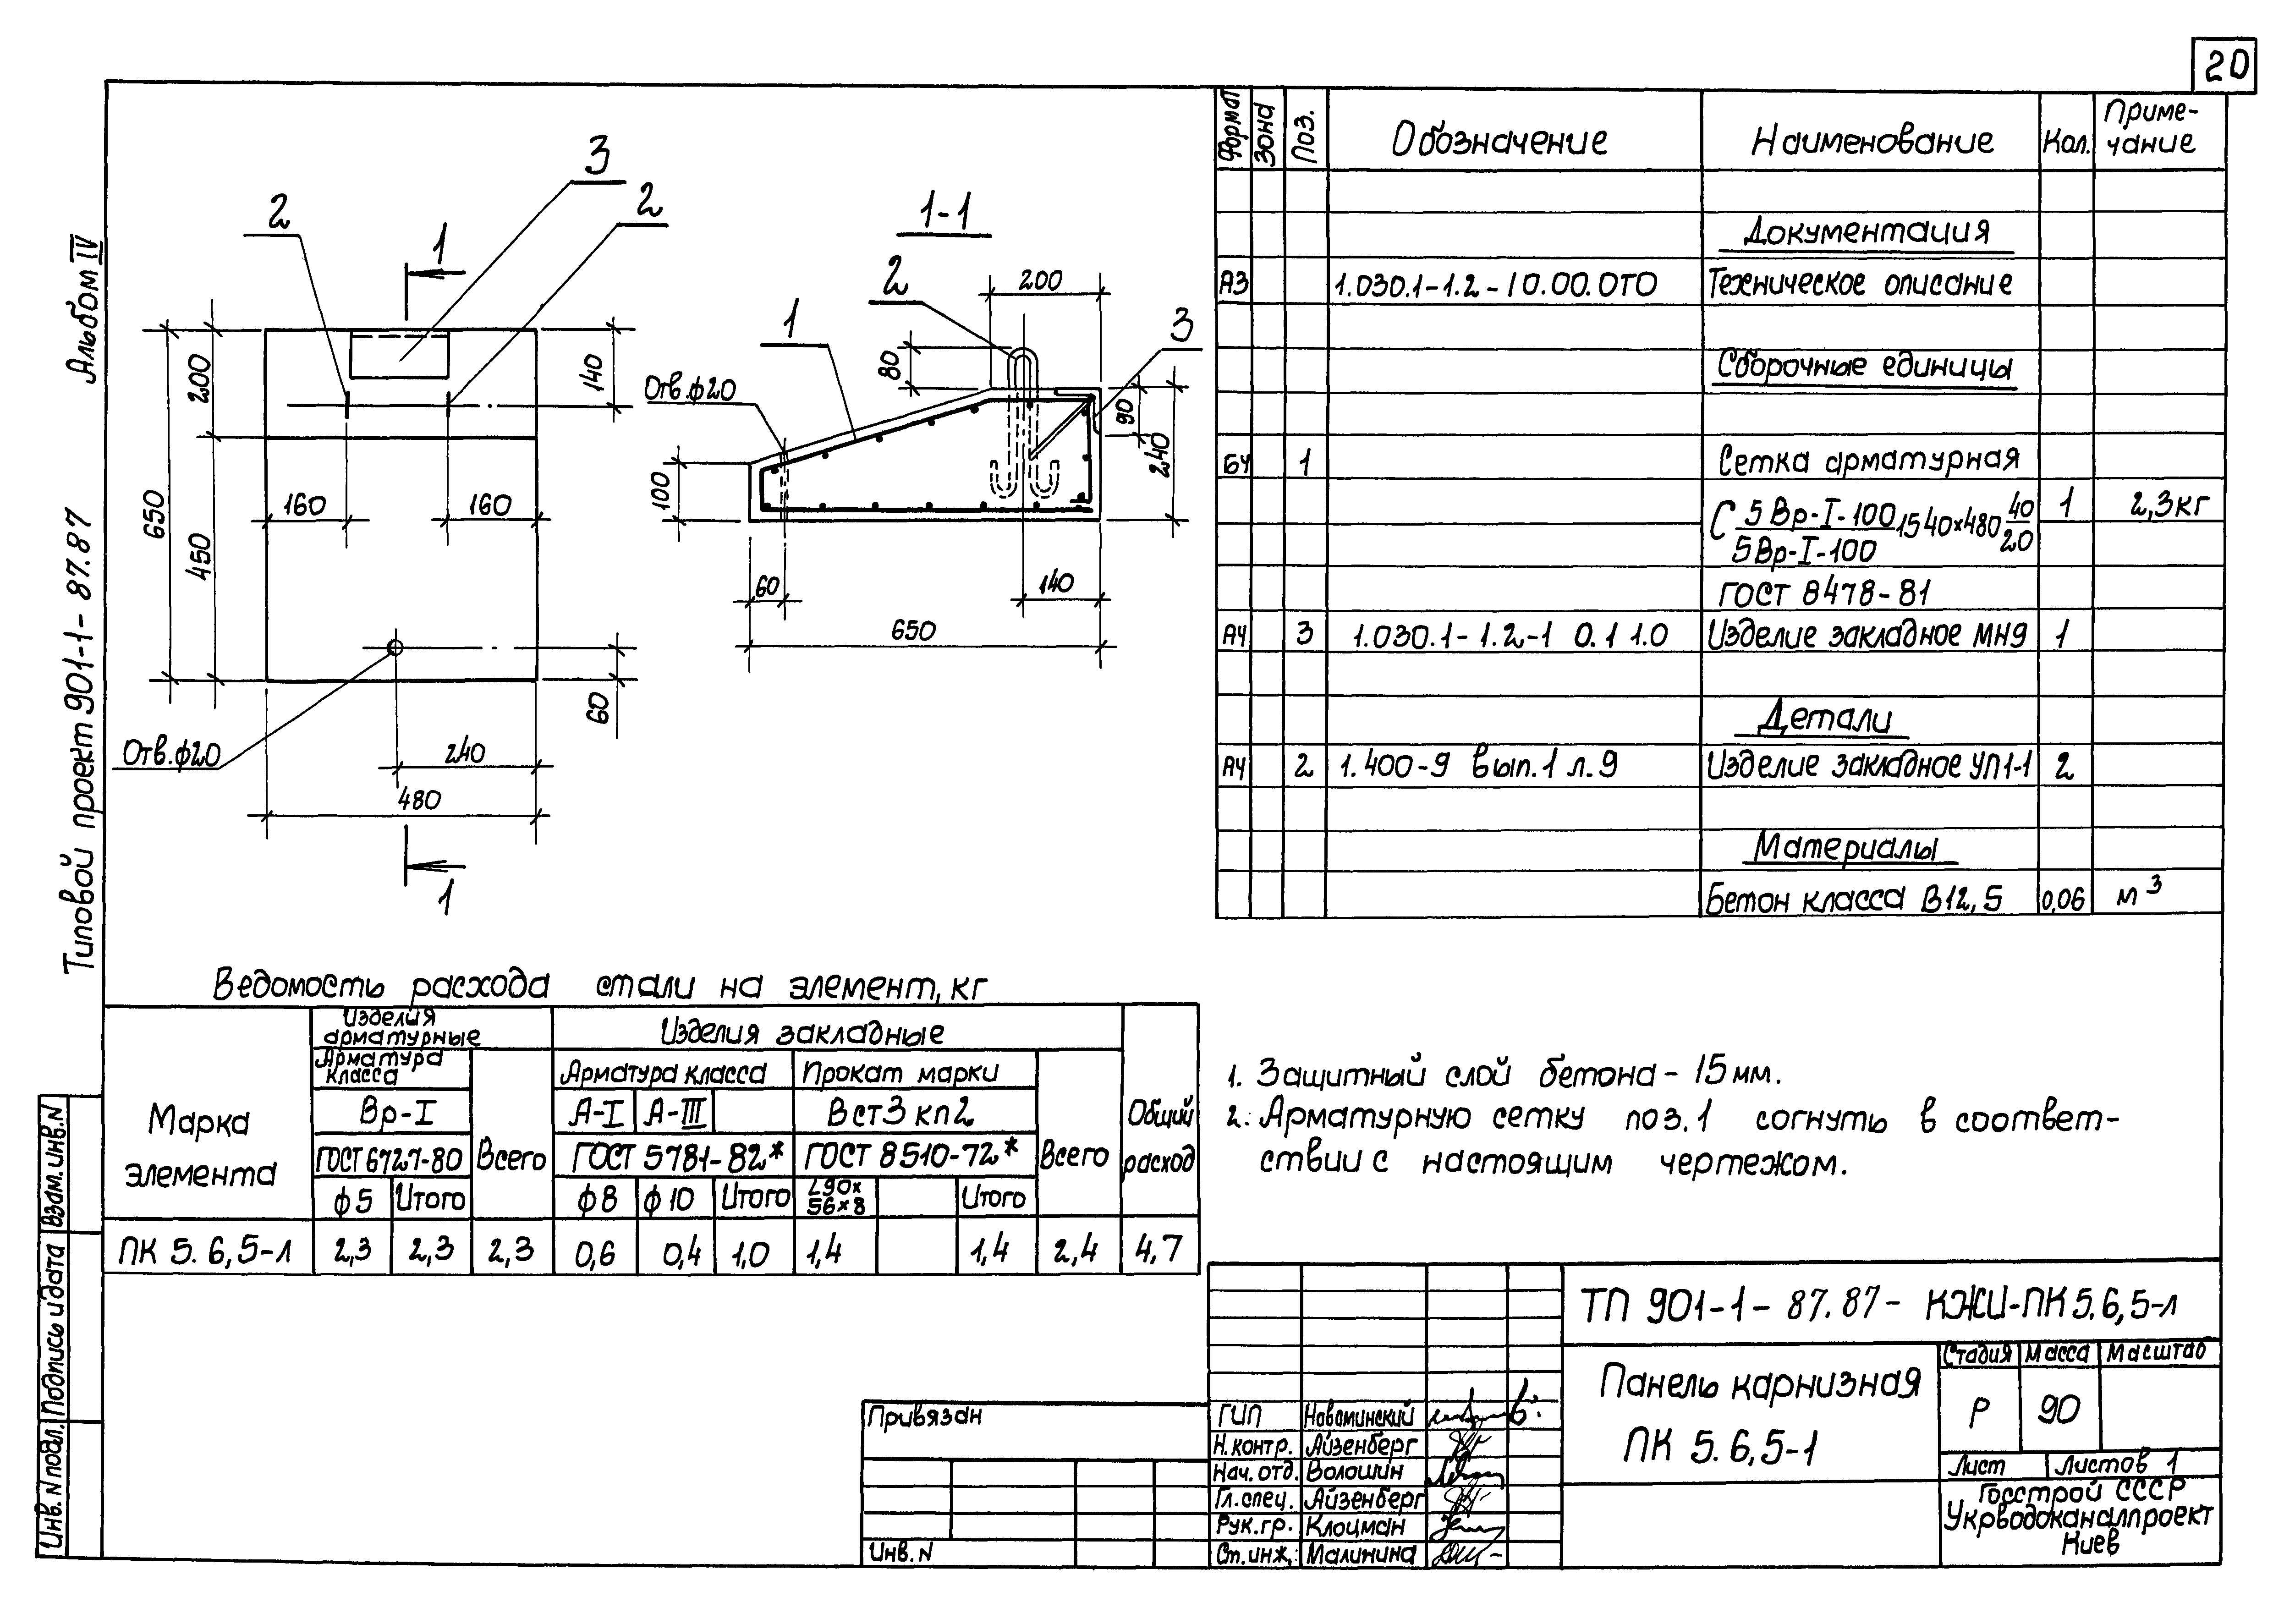 20
Альбом IV
Типовой проект 901-1-87.87
Взам. инв. N
Подпись и дата
Инв. N подл.
3
2
2
1
650
200
450
140
160
160
60
Отв. ф20
240
480
1
1-1
2
200
1
3
80
Отв. ф20
90
240
100
60
140
650
Формат Зона Поз. Обозначение Наименование Кол. Приме-
чание
Документация
А3 1.030.1-1.2-10.00.0ТО Техническое описание
Сборочные единицы
БЧ 1 Сетка арматурная
С 5Вр-I-100/5Вр-I-100 1540×480 40/20 1 2,3кг
ГОСТ 8478-81
А4 3 1.030.1-1.2-1 0.1 1.0 Изделие закладное МН9 1
Детали
А4 2 1.400-9 вып.1 л.9 Изделие закладное УП1-1 2
Материалы
Бетон класса В12,5 0,06 м³
Ведомость расхода стали на элемент, кг
Марка
элемента
Изделия
арматурные
Изделия закладные
Общий
расход
Арматура
класса
Всего
Арматура класса
Прокат марки
Всего
Вр-I
А-I А-III
Вст3 кп2
ГОСТ 6727-80
ГОСТ 5781-82*
ГОСТ 8510-72*
ф5 Итого ф8 ф10 Итого L90×
56×8 Итого
ПК 5.6,5-л 2,3 2,3 2,3 0,6 0,4 1,0 1,4 1,4 2,4 4,7
1. Защитный слой бетона - 15мм.
2. Арматурную сетку поз.1 согнуть в соответ-
ствии с настоящим чертежом.
Привязан
Инв. N
ТП 901-1-87.87- КЖИ-ПК5.6,5-л
Панель карнизная
ПК 5.6,5-1
Стадия Масса Масштаб
Р 90
Лист Листов 1
Госстрой СССР
Укрводоканалпроект
Киев
ГИП Новоминский
Н.контр. Айзенберг
Нач.отд. Волошин
Гл.спец. Айзенберг
Рук.гр. Клоцман
Ст.инж. Малинина